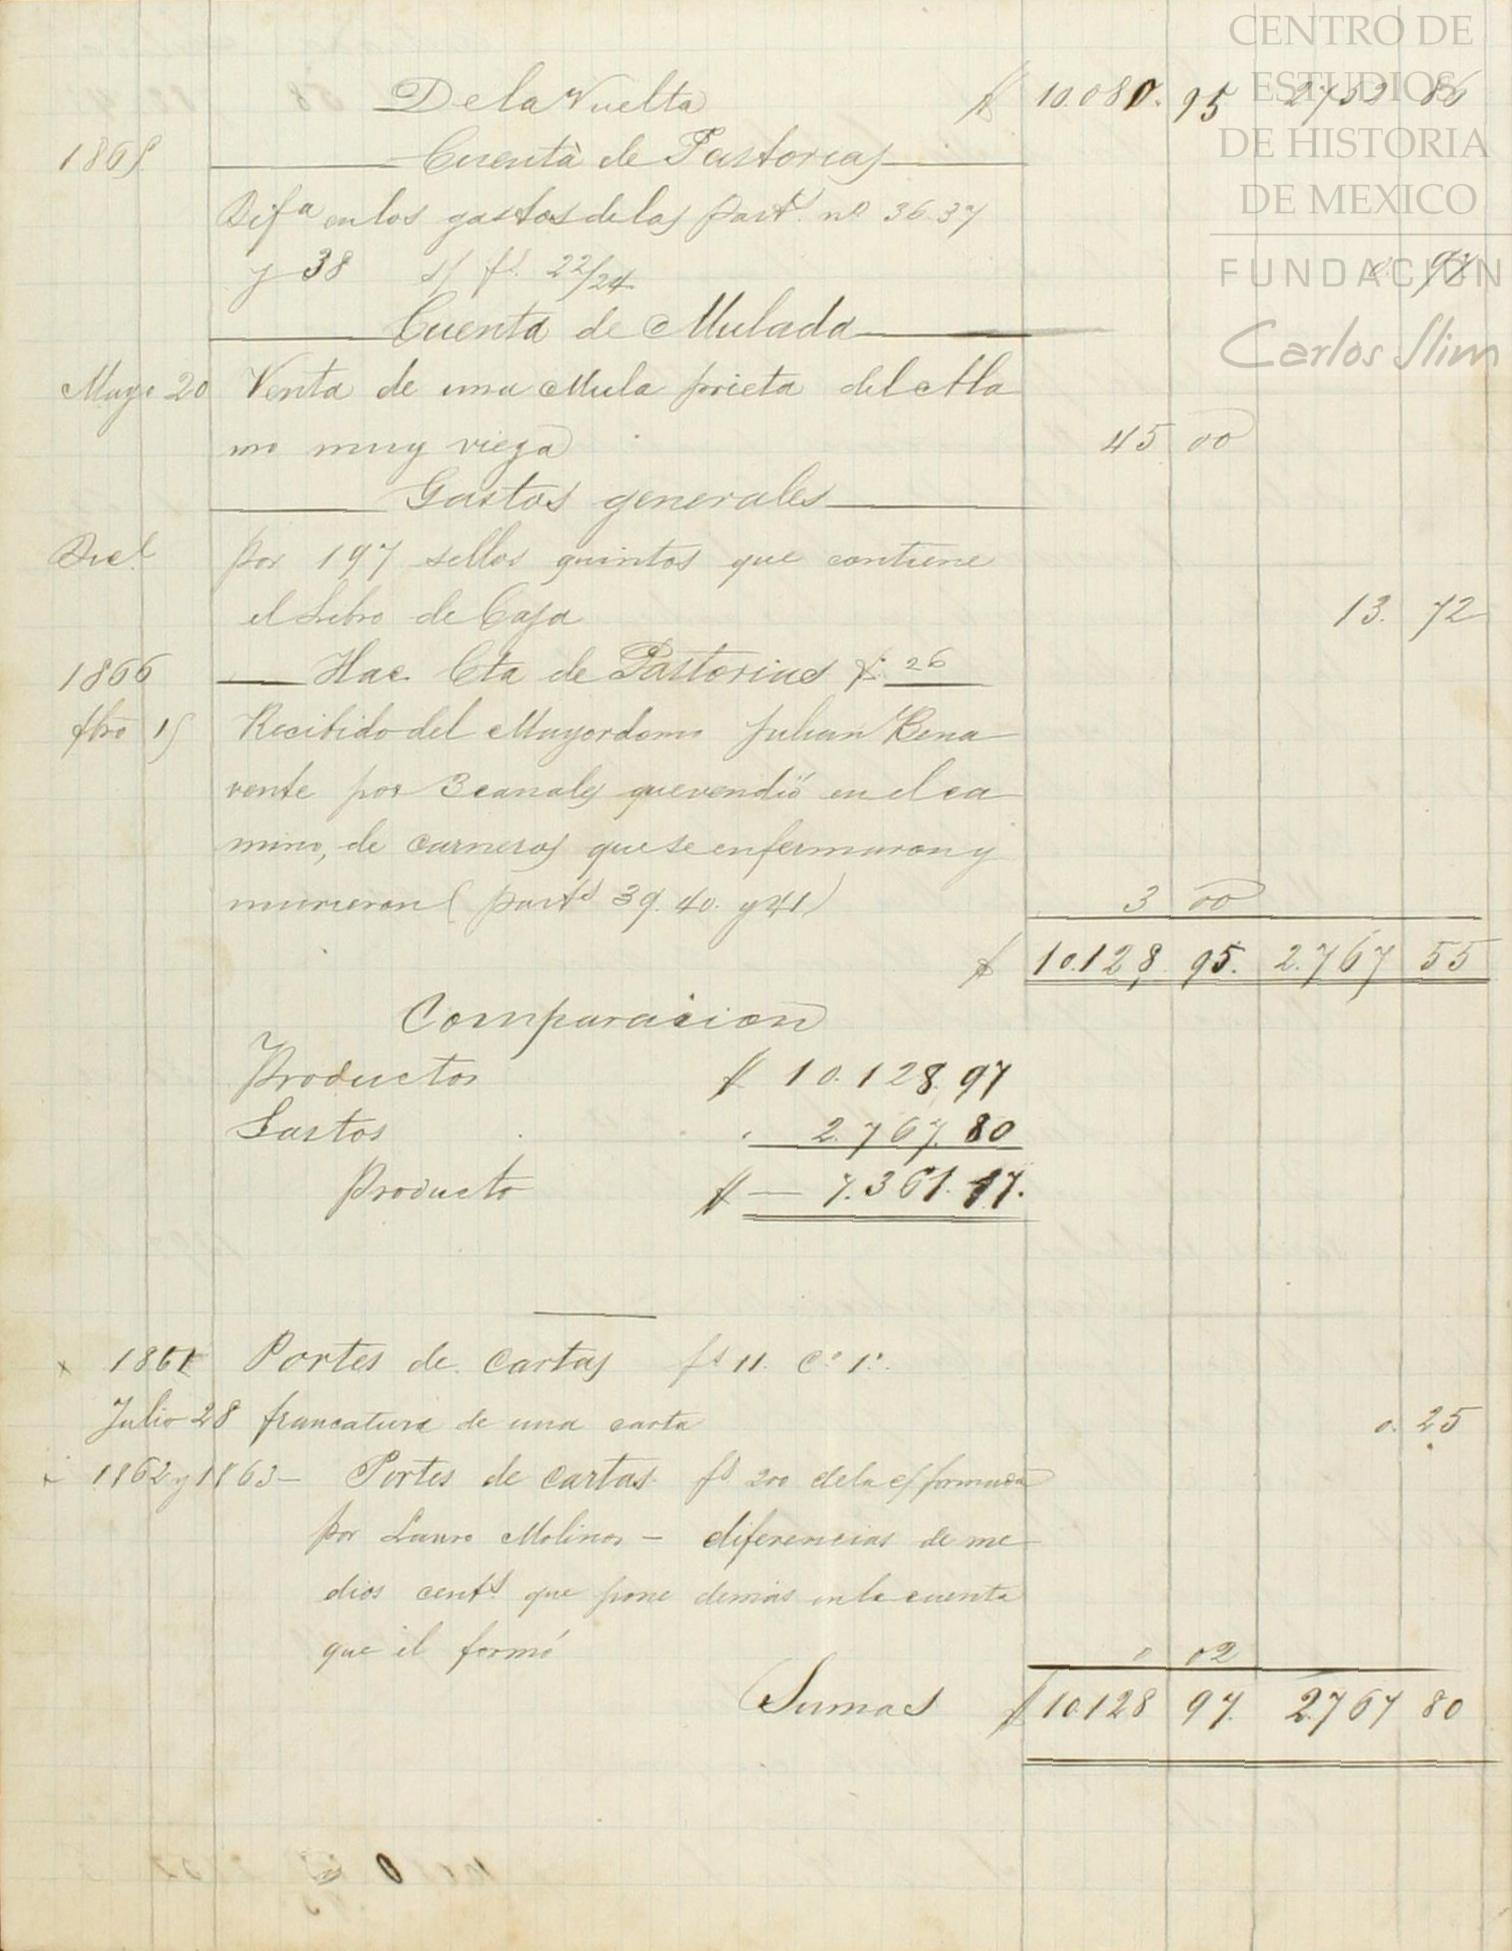 CENTRO DE
ESTUDIOS
DE HISTORIA
DE MEXICO
FUNDACIÓN
Carlos Slim
De la Vuelta $ 10.080. 95 2753 86
1865 Cuenta de Pastorias
Difa en los gastos de las parts. no 36. 37
y 38 s/ fs. 22/24 0. 97
Cuenta de Mulada
Mayo 20 Venta de una Mula prieta del Ala
mo muy vieja 45 00
Gastos generales
Dice. por 197 sellos quintos que contiene
el Libro de Caja 13. 72
1866 Hac Cta de Pastorias f. 26
fbro 15 Recibido del Mayordomo Julian Bena
vente por 3 canales que vendió en el ca
mino, de carneros que se enfermaron y
murieron (parts 39. 40. y 41) 3 00
$ 10.128. 95. 2.767 55
Comparacion
Productos $ 10.128.97
Gastos . 2.767.80
Producto $ — 7.361.17.
x 1861 Portes de Cartas fs 11. Co 1o.
Julio 28 francatura de una carta 0. 25
x 1862 y 1863 — Portes de Cartas fs 200 de la c/ formada
por Lauro Molinos — diferencias de me
dios cents. que pone demás en la cuenta
que él formó 0 02
Sumas $ 10.128 97. 2.767 80